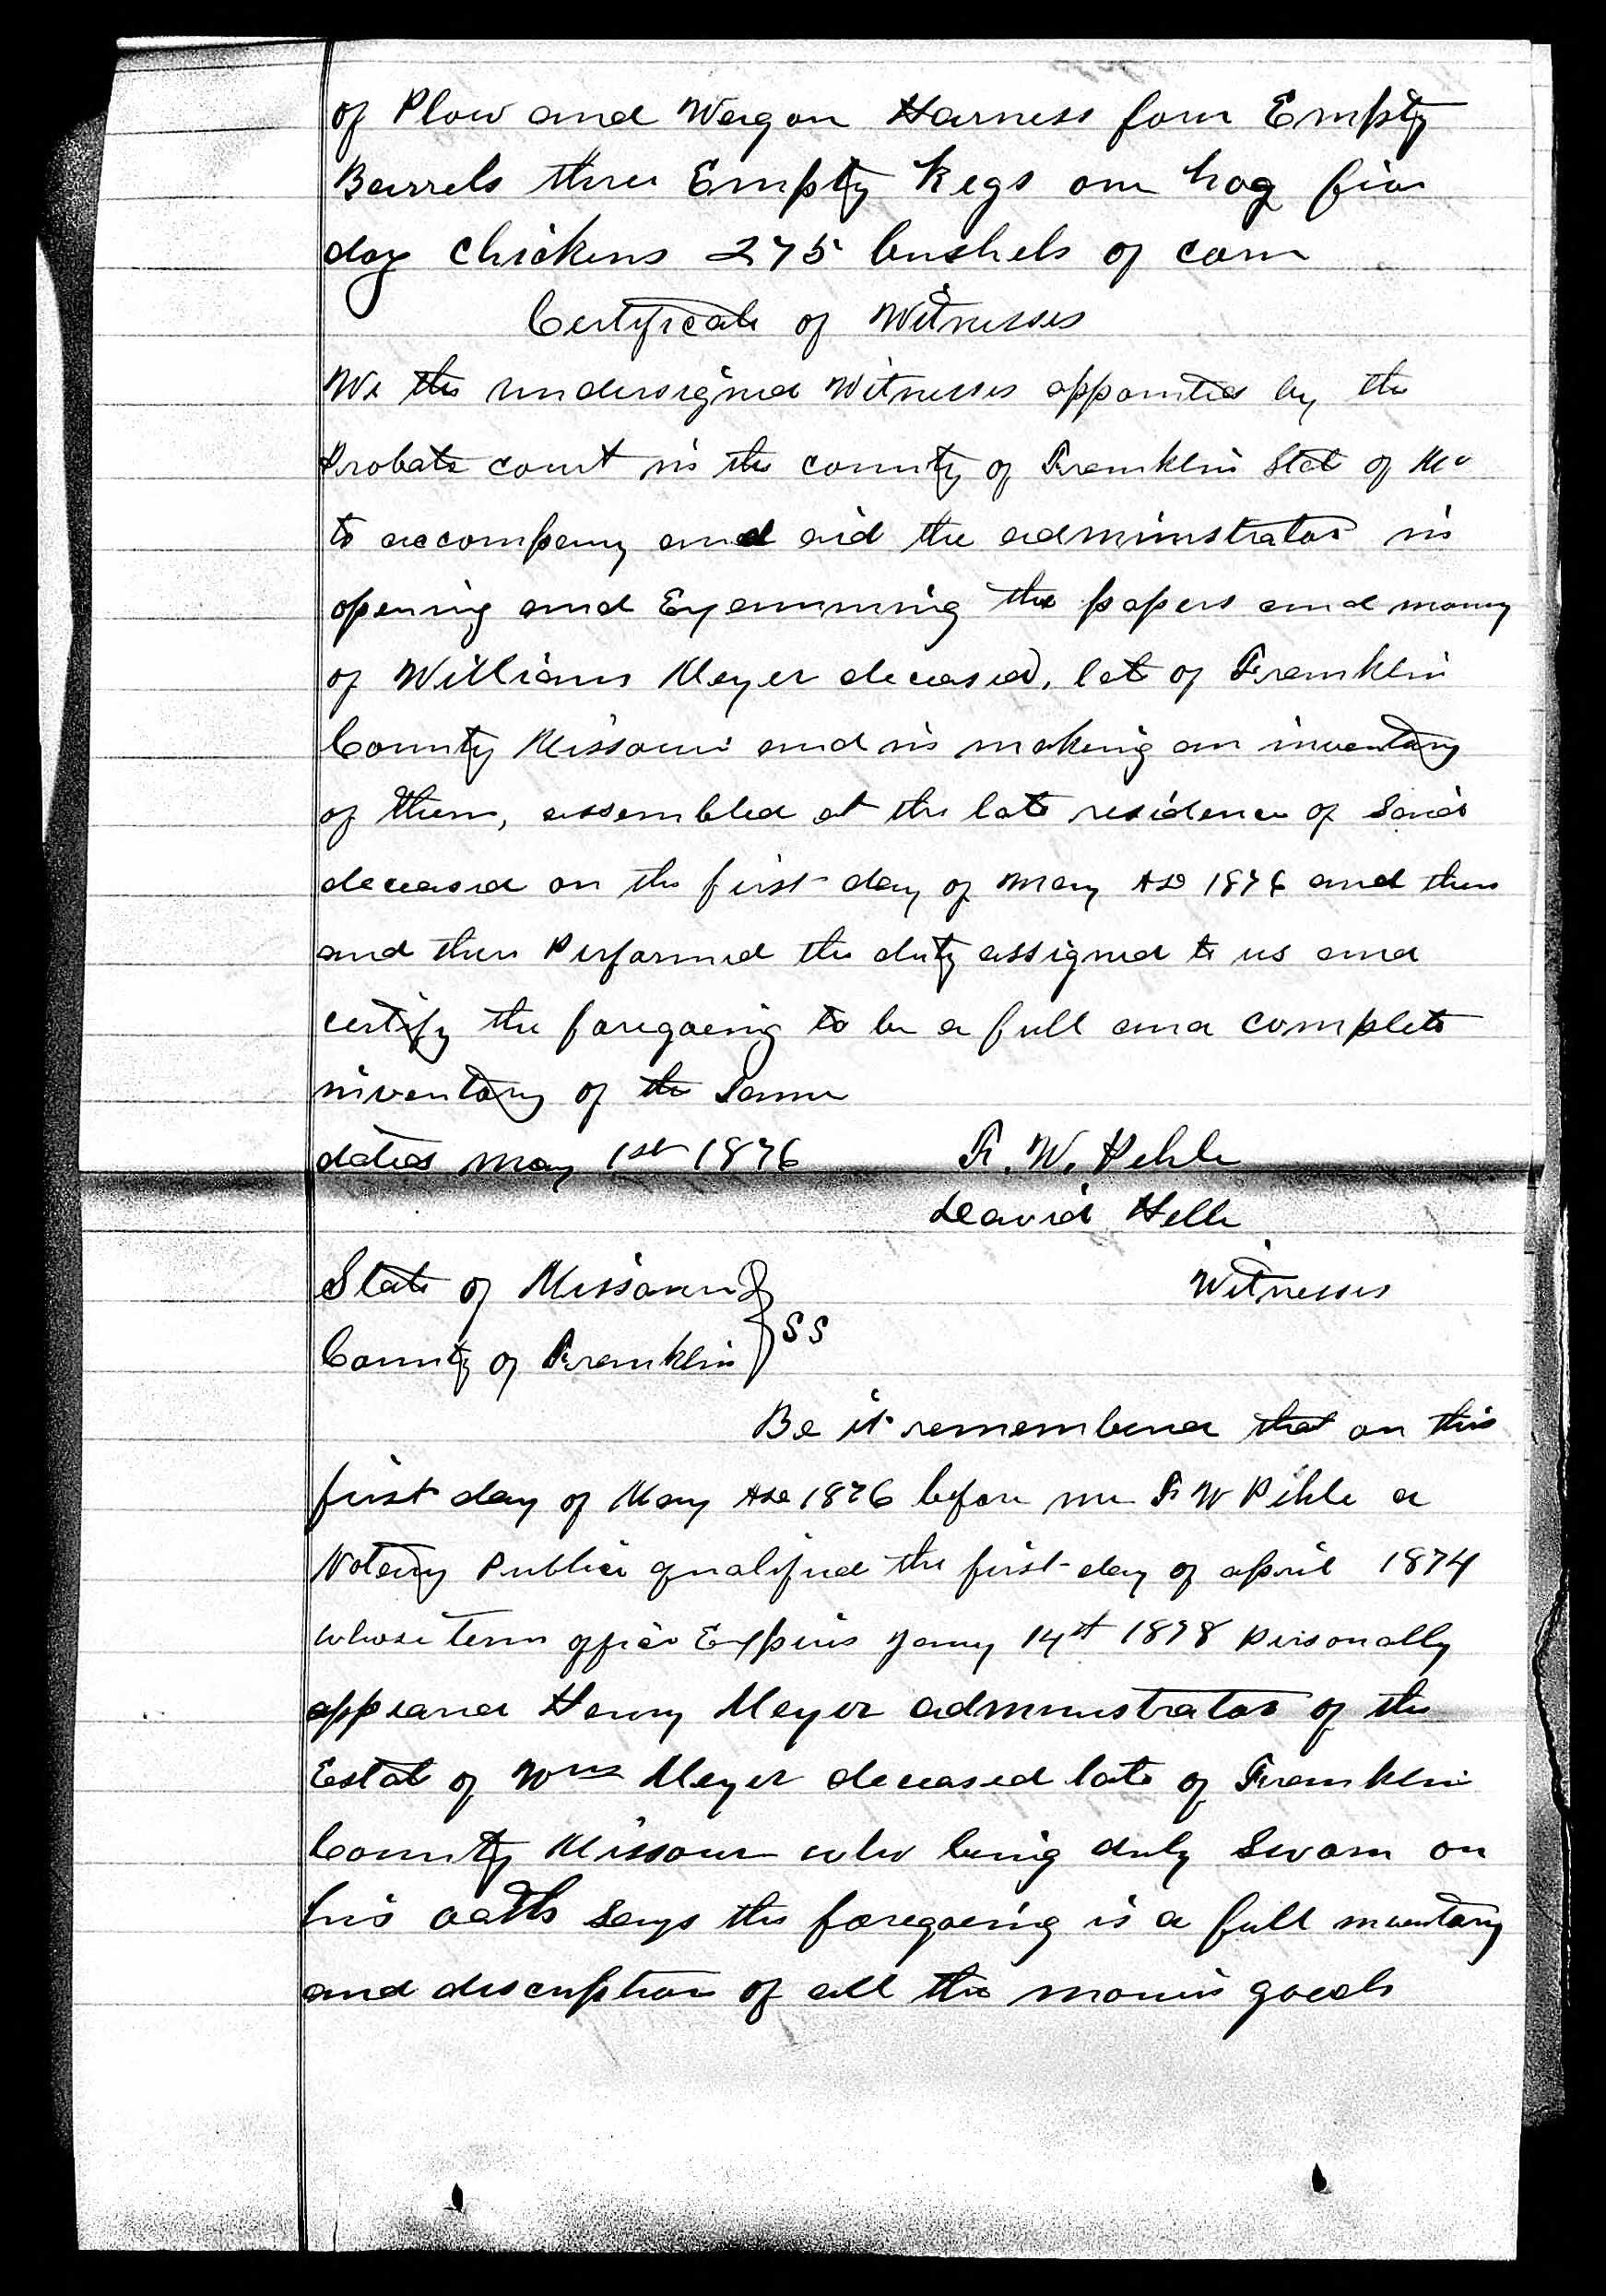 of Plow and Wagon Harness four Empty
Barrels three Empty Kegs one hog five
doz Chickens 275 bushels of corn
Certificate of Witnesses
We the undersigned Witnesses appointed by the
Probate court in the county of Franklin State of Mo
to accompany and aid the adminstrator in
opening and Examining the papers and money
of William Meyer deceased, late of Franklin
County Missouri and in making an inventory
of them, assembled at the late residence of Said
deceased on the first day of May AD 1876 and then
and there Performed the duty assigned to us and
certify the foregoeing to be a full and complete
inventory of the Same
dated May 1st 1876 F. W. Pehle
David Helle
State of Missouri Witnesses
SS
County of Franklin
Be it remembered that on this
first day of May AD 1876 before me F W Pehle a
Notary Public qualified the first day of april 1874
whose term office Expires Jany 14th 1878 personally
appeared Henry Meyer administrator of the
Estate of Wm Meyer deceased late of Franklin
County Missouri who being duly Sworn on
his oath Says the foregoeing is a full inventory
and discription of all the goods